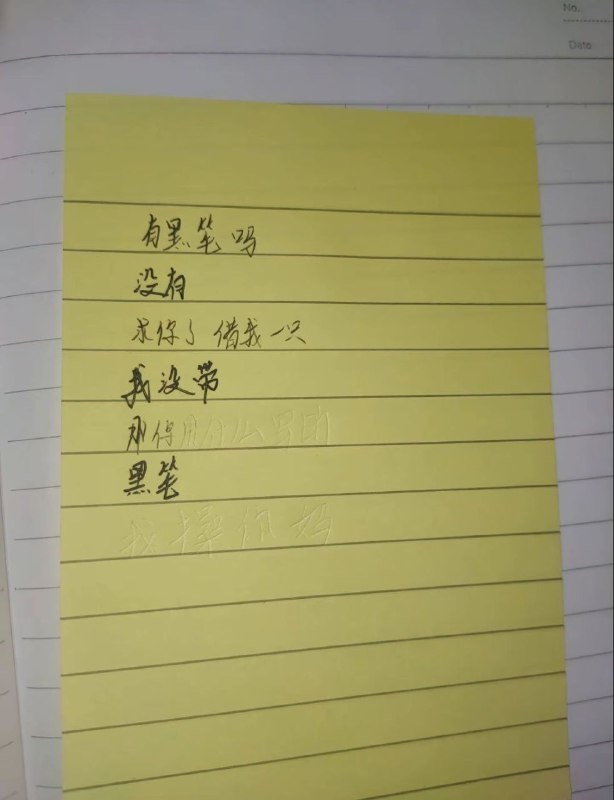 No.
Date
有黑笔吗
没有
求你了借我一只
我没带
那你用什么写的
黑笔
我操你妈